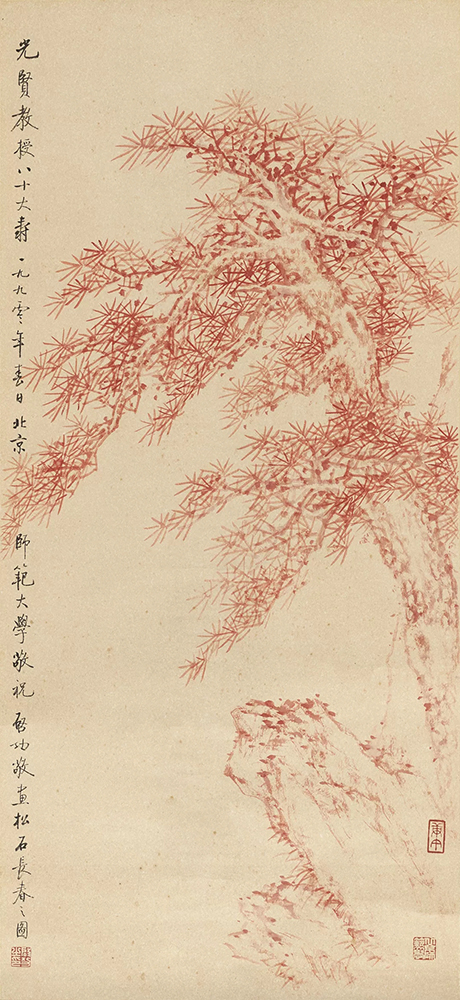 光賢教授八十大壽一九九零年春日北京師範大學敬祝啓功敬畫松石長春之圖